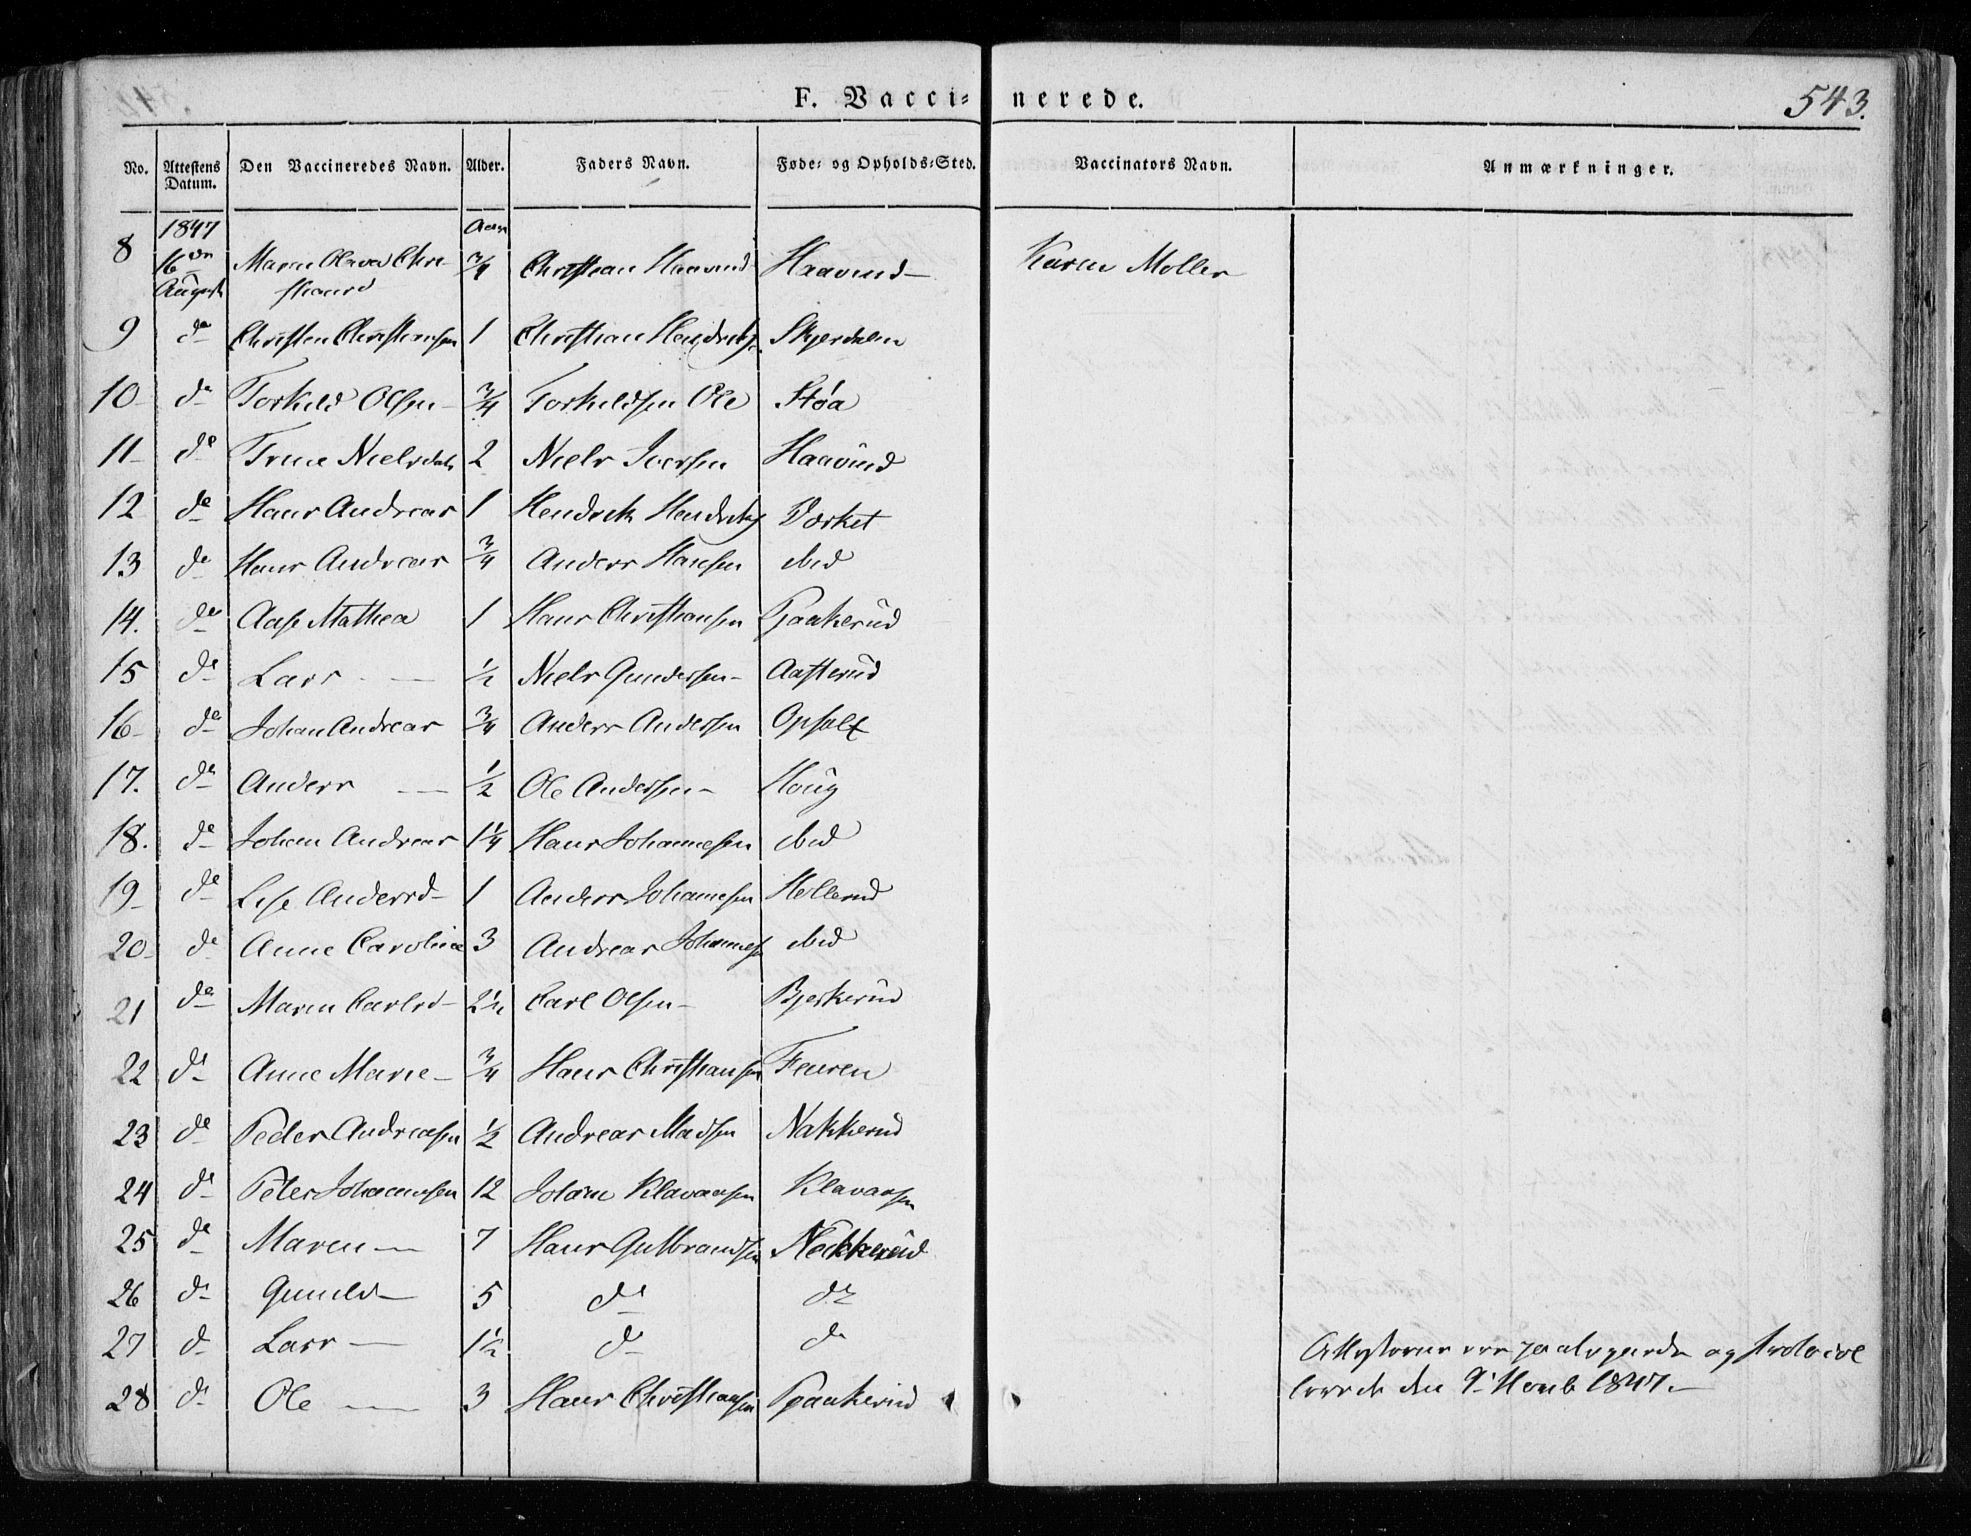 F. Vacci= nerede. 543.
No. Attestens Datum. Den Vaccineredes Navn. Alder. Faders Navn. Føde= og Opholds=Sted. Vaccinators Navn. Anmærkninger.
1847 Aar
8 16de August Maren Olava Chri- stiansd 3/4 Christian Haavind Haavind Karen Møller
9 do Christen Christiansen 1 Christian Hendriks. Skjerdalen
10 do Torkild Olsen 3/4 Torkildsen Ole Støa
11 do Trine Nielsdatr 2 Niels Iversen Haavind
12 do Hans Andreas 1 Hendrik Hendriks Værket
13 do Hans Andreas 3/4 Anders Hansen ibid
14. do Aase Mathea 1 Hans Christiansen Gaakerud
15 do Lars 1/2 Niels Gundersen Aasterud
16 do Johan Andreas 3/4 Anders Andersen Opsal
17. do Anders 1/2 Ole Andersen Houg
18. do Johan Andreas 1 1/4 Hans Johannesen ibid
19 do Lise Andersd 1 Anders Johannesen Hollerud
20 do Anne Caroline 3 Andreas Johannes ibid
21 do Maren Carlsd 2 1/2 Carl Olsen Bjerkerud
22 do Anne Marie 3/4 Hans Christiansen Feuren
23 do Peder Andreasen 1/2 Andreas Madsen Nakkerud
24 do Peter Johannesen 12 Johan Klavansen Klavansen
25 do Maren 7 Hans Gulbrandsen Nakkerud
26 do Gunild 5 do do
27 do Lars 1 1/2 do do
28 do Ole 3 Hans Christiansen Gaakerud
og
den 9 1847.